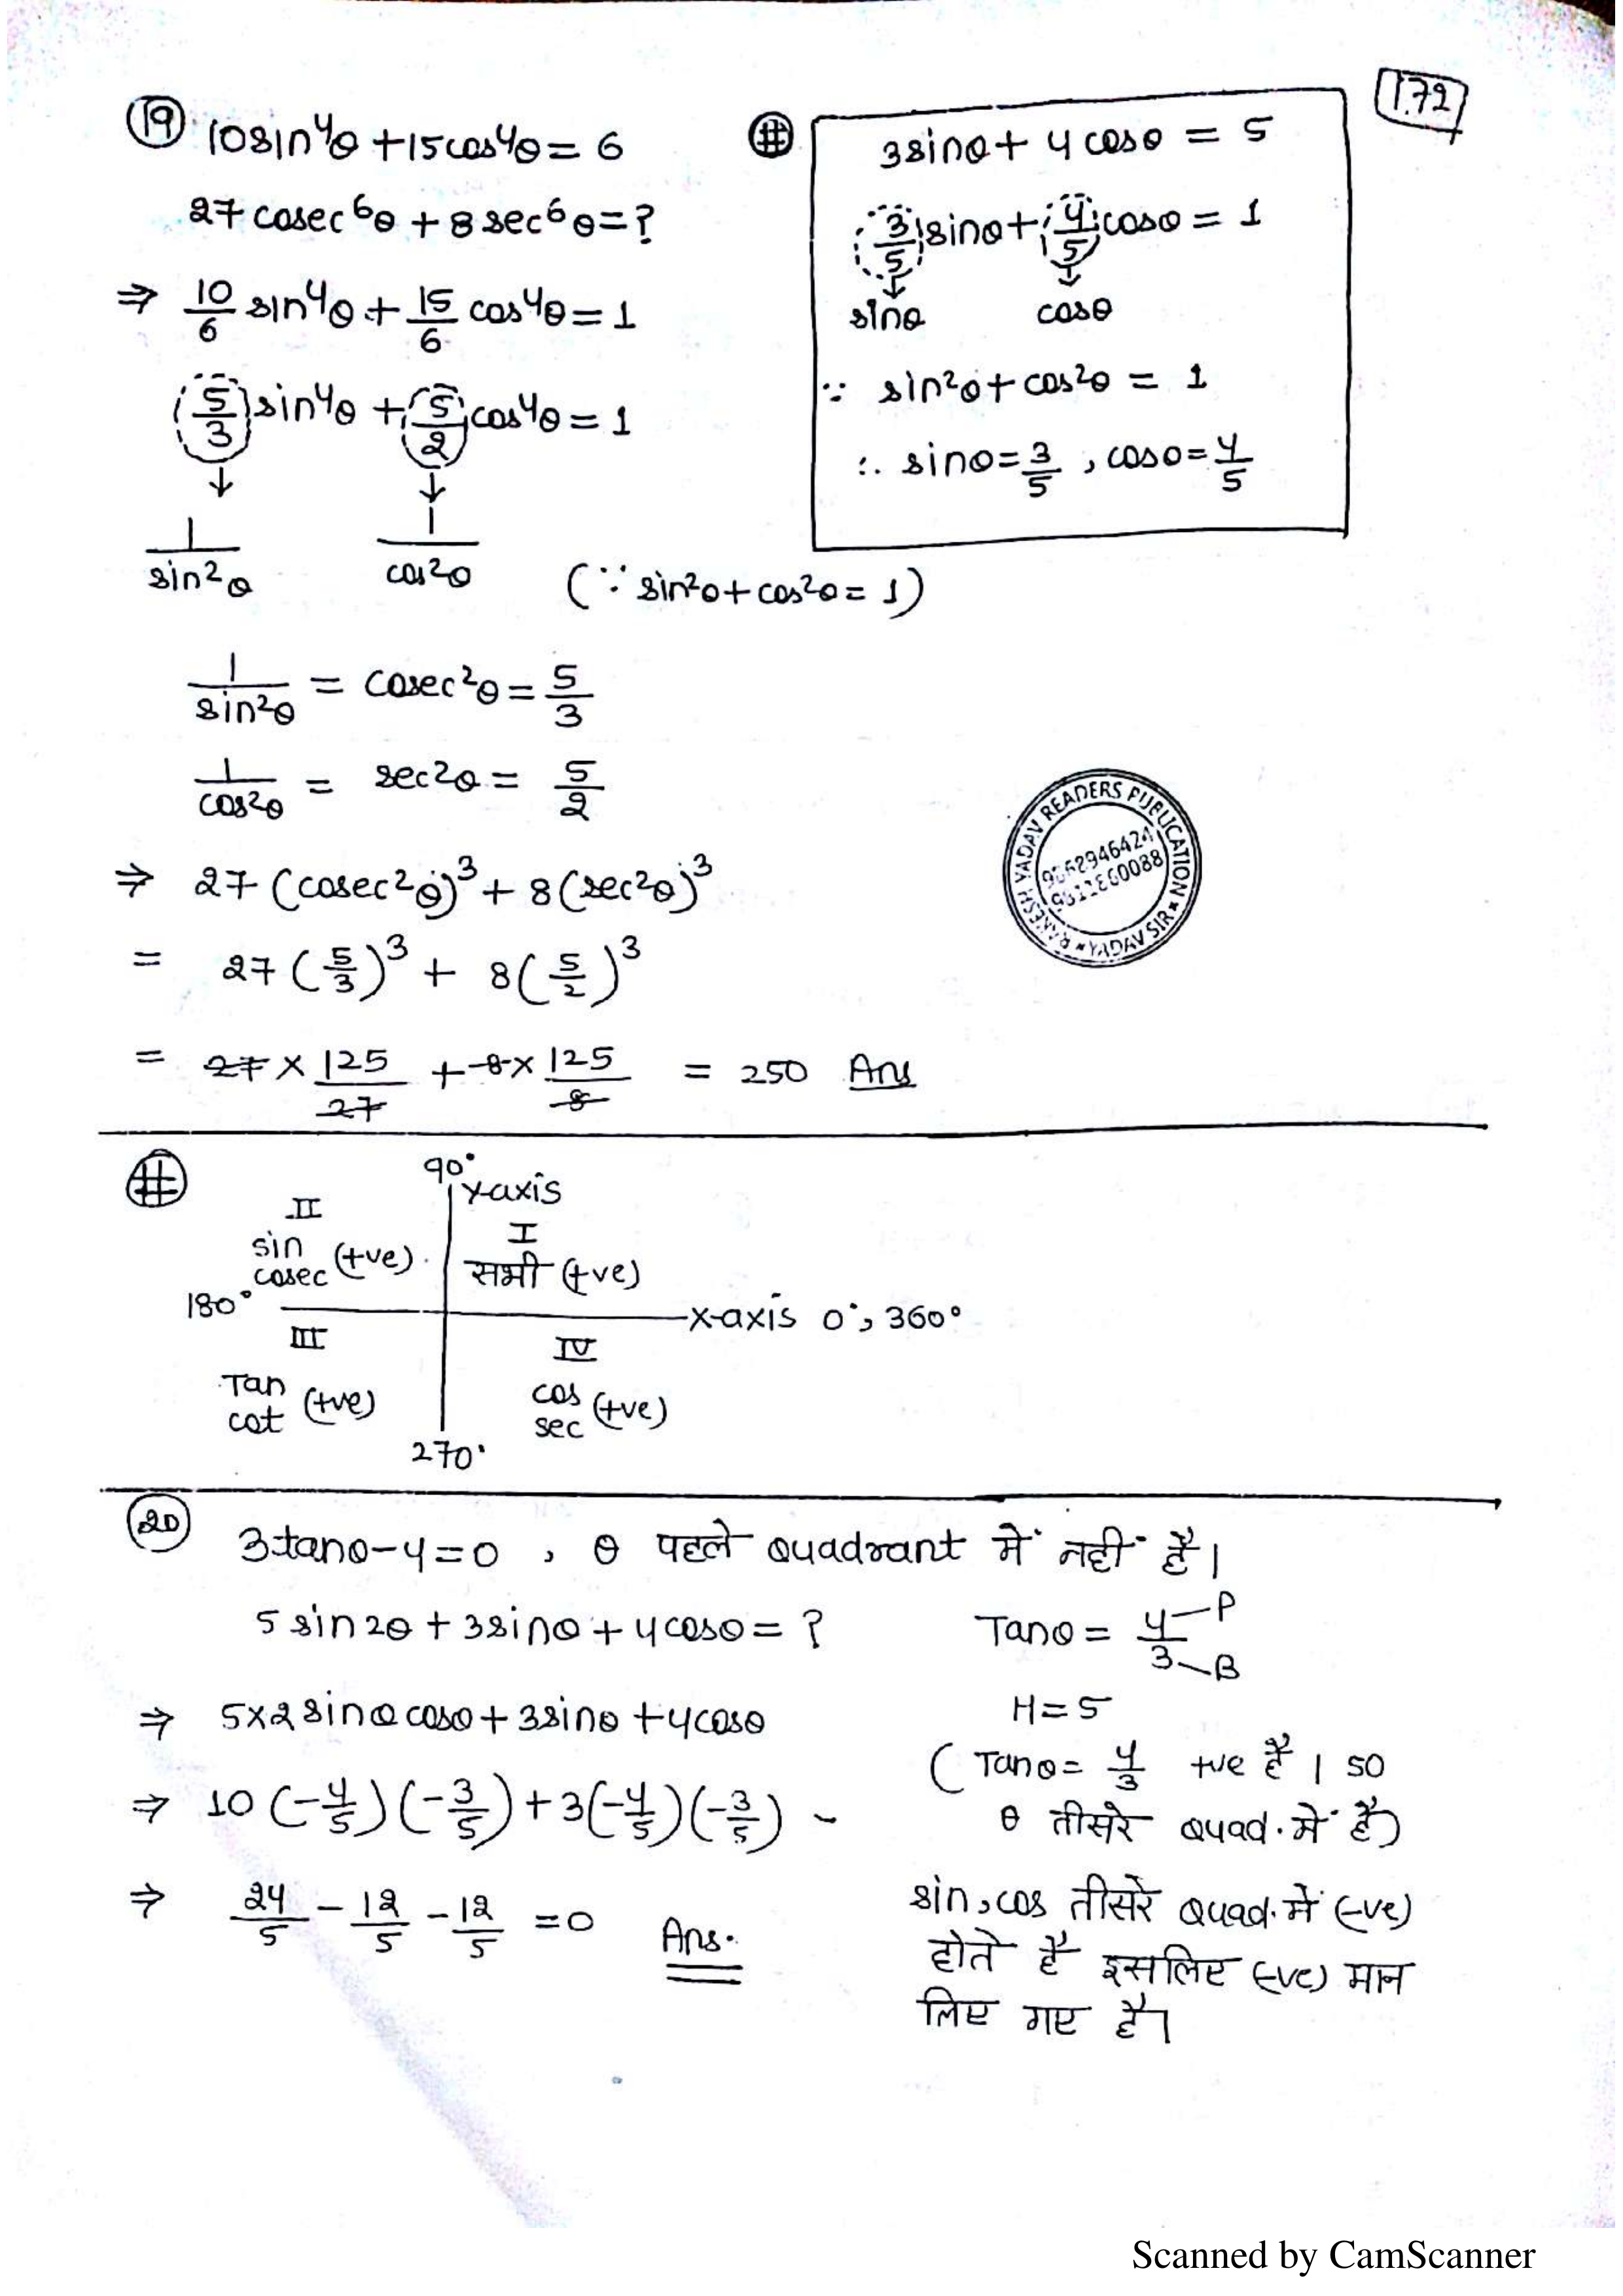 172
(19) 10sin⁴θ + 15cos⁴θ = 6
27cosec⁶θ + 8sec⁶θ = ?
⇒ 10/6 sin⁴θ + 15/6 cos⁴θ = 1
5/3 sin⁴θ + 5/2 cos⁴θ = 1
↓ ↓
1/sin²θ 1/cos²θ (∵ sin²θ + cos²θ = 1)
1/sin²θ = cosec²θ = 5/3
1/cos²θ = sec²θ = 5/2
⇒ 27 (cosec²θ)³ + 8 (sec²θ)³
= 27 (5/3)³ + 8 (5/2)³
= 27 × 125/27 + 8 × 125/8 = 250 Ans
# 3sinθ + 4cosθ = 5
3/5 sinθ + 4/5 cosθ = 1
↓ ↓
sinθ cosθ
∵ sin²θ + cos²θ = 1
∴ sinθ = 3/5 , cosθ = 4/5
RAKESH YADAV READERS PUBLICATION * YADAV SIR *
#
90°
Y-axis
II
sin
cosec (+ve)
I
सभी (+ve)
180°
X-axis 0°, 360°
III
Tan
cot (+ve)
IV
cos
sec (+ve)
270°
(20) 3tanθ-4=0 , θ पहले Quadrant में नहीं है।
5 sin2θ + 3sinθ + 4cosθ = ?
⇒ 5×2 sinθ cosθ + 3sinθ + 4cosθ
⇒ 10 (-4/5) (-3/5) + 3(-4/5) (-3/5) -
⇒ 24/5 - 12/5 - 12/5 = 0 Ans.
Tanθ = 4/3 P B
H = 5
( Tanθ = 4/3 +ve है । so
θ तीसरे Quad. में है)
sin, cos तीसरे Quad. में (-ve)
होते है इसलिए (-ve) मान
लिए गए है।
Scanned by CamScanner